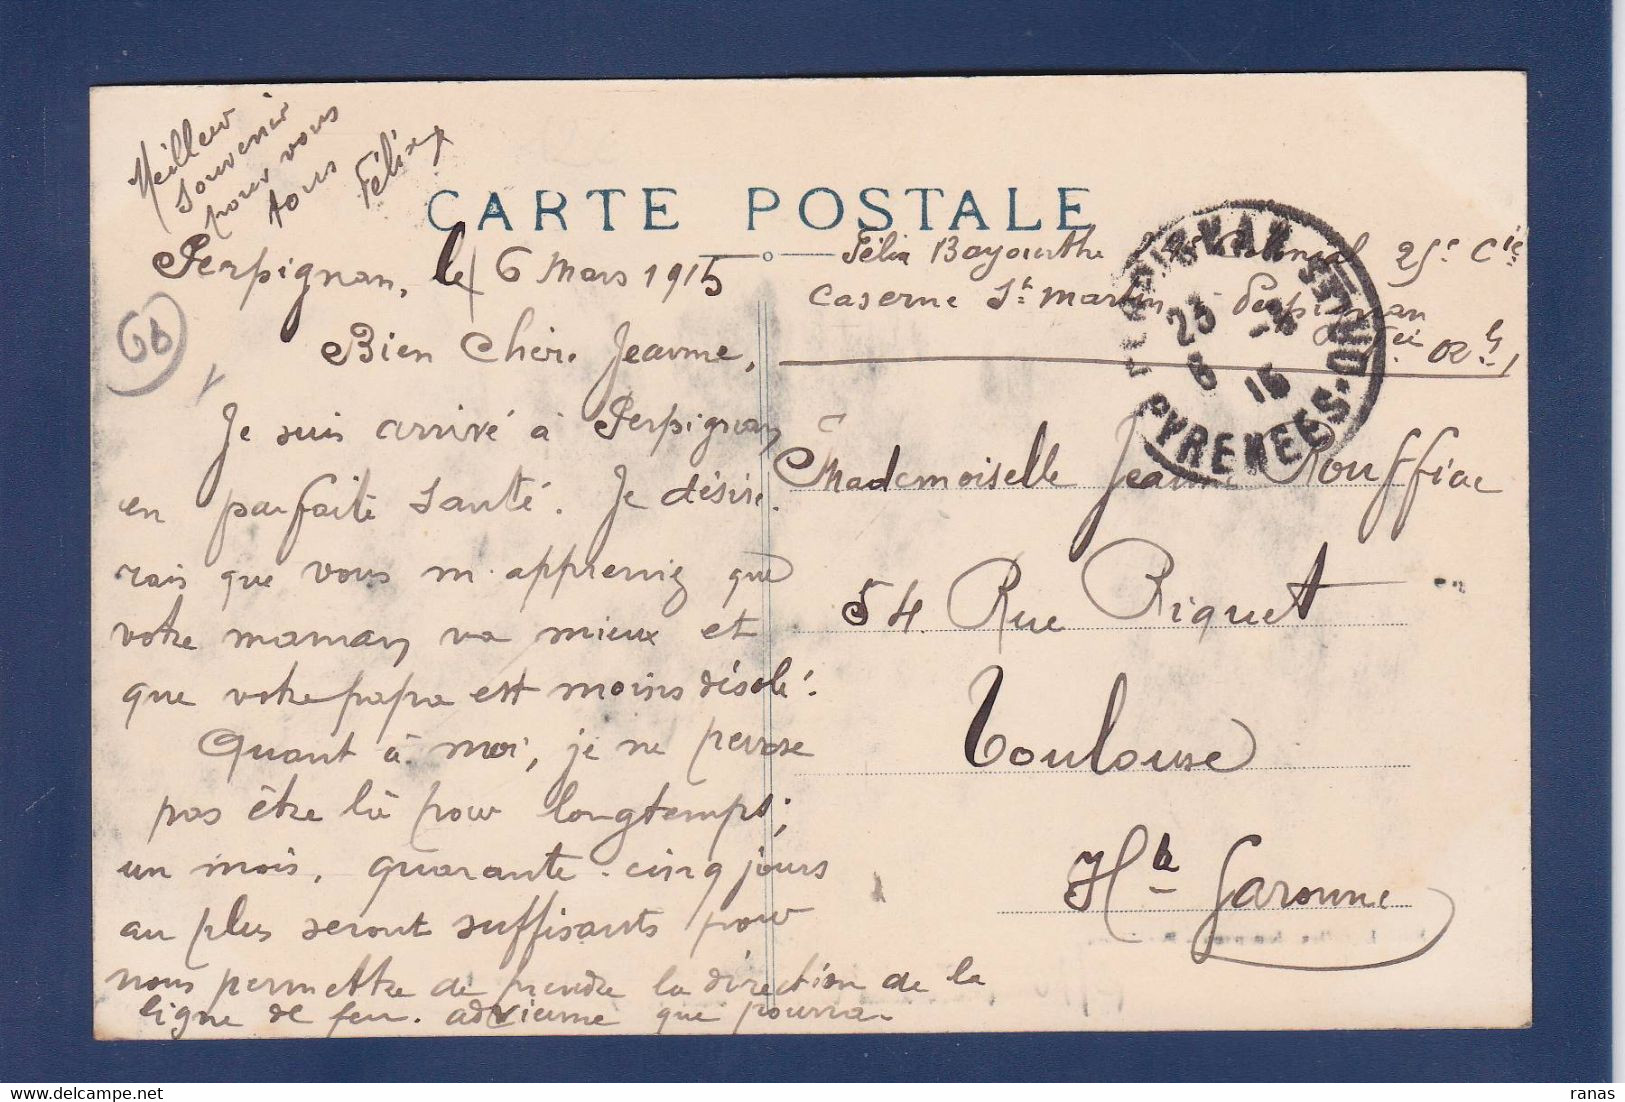 Meilleur
souvenir
pour vous
tous Félix
CARTE POSTALE
Perpignan, le 6 Mars 1915
Bien Chère Jeanne,
Je suis arrivé à Perpignan
en parfaite santé. Je désire.
rais que vous m'appreniez que
votre maman va mieux et
que votre papa est moins désolé.
Quant à moi, je ne pense
pas être là pour longtemps;
un mois, quarante-cinq jours
au plus seront suffisants pour
nous permettre de prendre la direction de la
ligne de feu. advienne que pourra.
Félix Bayourthe Colonial 25e Cie
Caserne St Martin Perpignan
Mademoiselle Jeanne Rouffiac
54 Rue Riquet
Toulouse
Hte Garonne
PERPIGNAN
23
6 15
PYRENEES-ORIENTALES
68
ranas